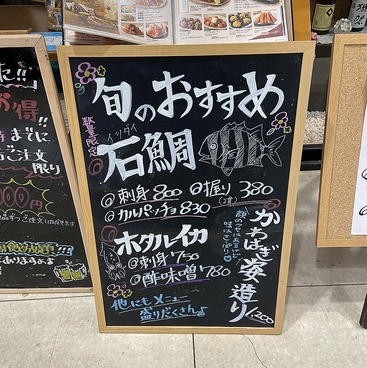 旬のおすすめ
数量限定
イシダイ
石鯛
◎刺身800 ◎握り380
(2貫)
◎カルパッチョ830
ホタルイカ
◎刺身750
◎酢味噌780
かわはぎ姿造り
1,200
他にもメニュー
盛りだくさん♪
お得!!
までに
ご注文
限り